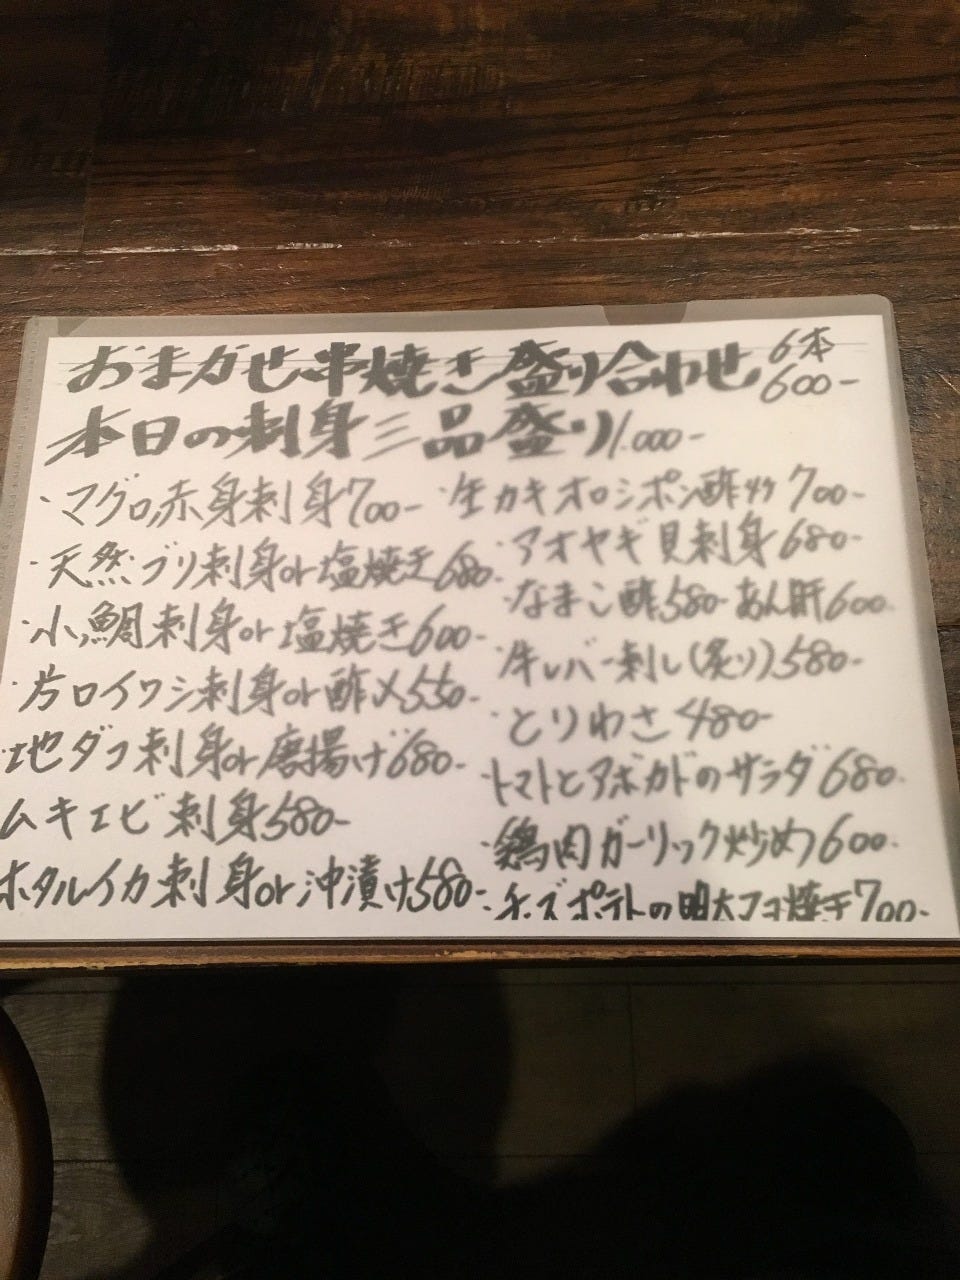 おまかせ串焼き盛り合わせ 6本 600-
本日の刺身三品盛り 1.000-
・マグロ赤身刺身700-
・天然ブリ刺身or塩焼き680-
・小鯛刺身or塩焼き600-
・片口イワシ刺身or酢〆550-
・地ダコ刺身or唐揚げ680-
ムキエビ刺身580-
ホタルイカ刺身or沖漬け580-
・生カキオロシポン酢 700-
・アオヤギ貝刺身680-
・なまこ酢580- あん肝600-
・牛レバー刺し(炙り)580-
・とりわさ480-
・トマトとアボカドのサラダ680-
・鶏肉ガーリック炒め600-
・チーズポテトの明太マヨ焼き700-